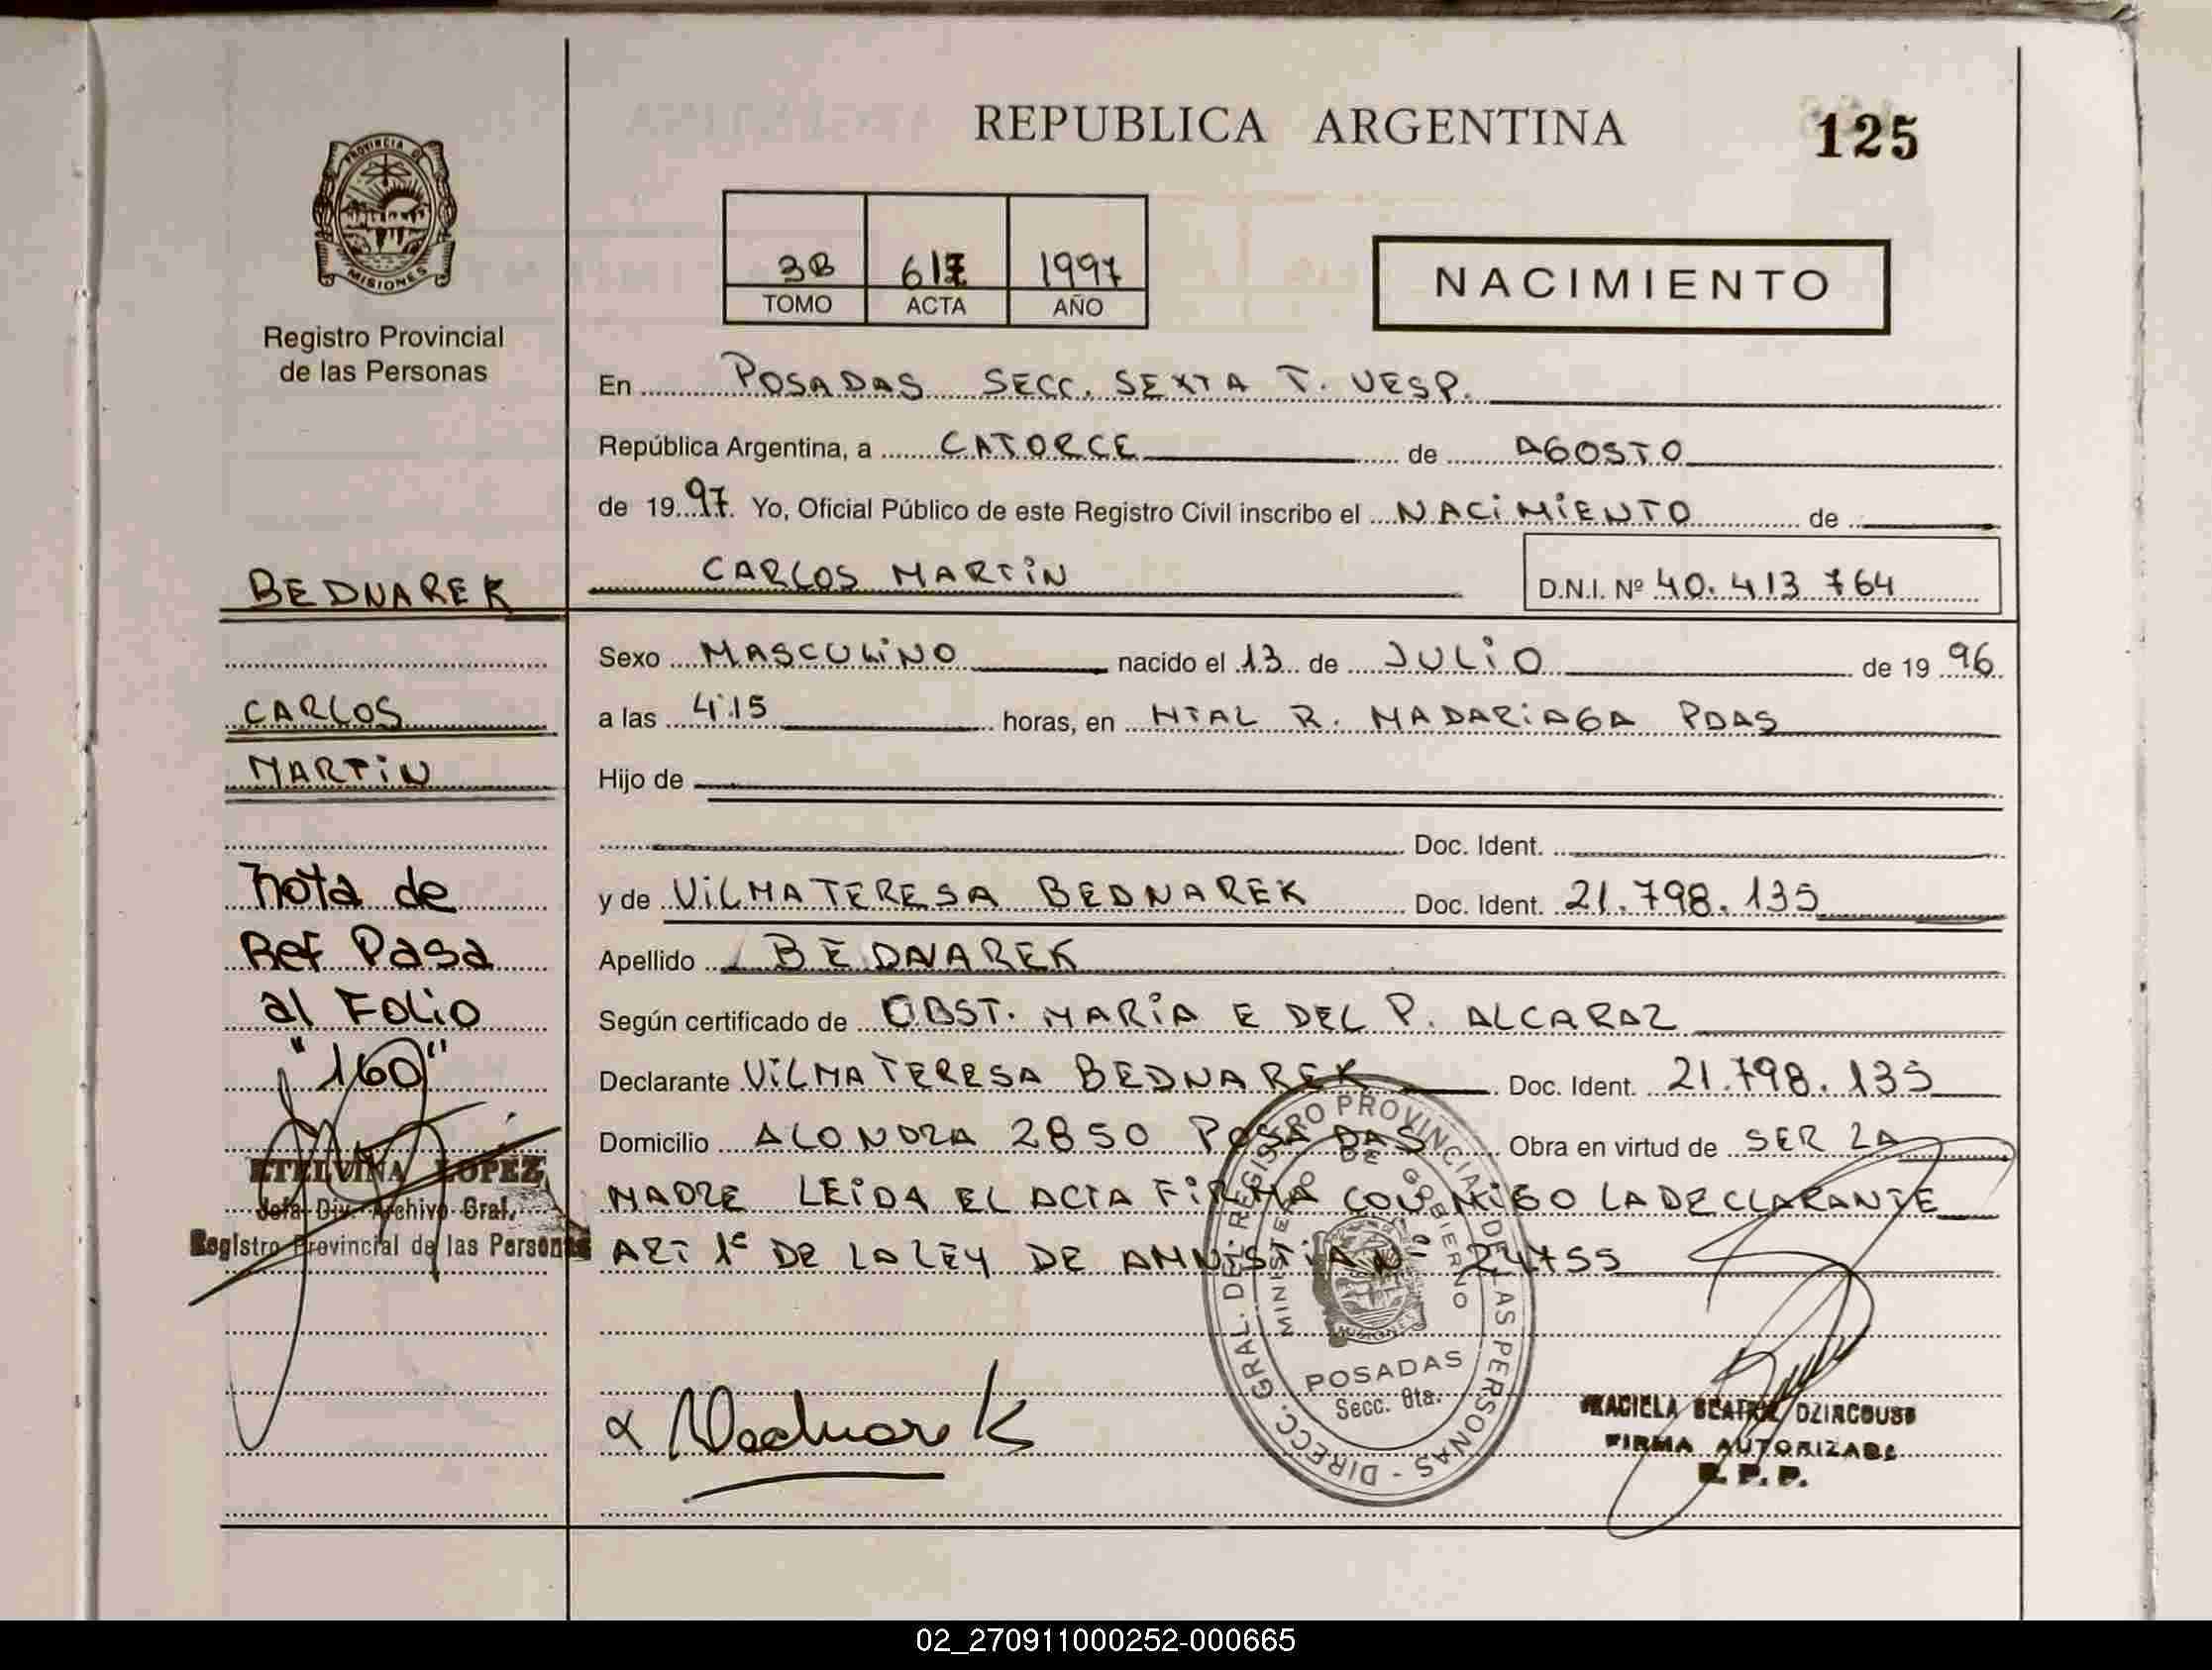 REPUBLICA ARGENTINA
125
PROVINCIA DE
MISIONES
Registro Provincial
de las Personas
3B 617 1997
TOMO ACTA AÑO
NACIMIENTO
En POSADAS SECC. SEXTA T. VESP.
República Argentina, a CATORCE de AGOSTO
de 1997. Yo, Oficial Público de este Registro Civil inscribo el NACIMIENTO de
CARLOS MARTIN
D.N.I. Nº 40.413764
BEDNAREK
CARLOS
MARTIN
Sexo MASCULINO nacido el 13 de JULIO de 1996
a las 4:15 horas, en HTAL R. MADARIAGA PDAS
Hijo de
Doc. Ident.
y de VILMA TERESA BEDNAREK Doc. Ident. 21.798.135
Apellido BEDNAREK
Según certificado de OBST. MARIA E DEL P. ALCARAZ
Declarante VILMA TERESA BEDNAREK Doc. Ident. 21.798.135
Domicilio ALONDRA 2850 POSADAS Obra en virtud de SER LA
MADRE LEIDA EL ACTA FIRMA CONMIGO LA DECLARANTE
ART 1º DE LA LEY DE AMNISTIA Nº 24755
Nota de
Ref Pasa
al Folio
"160"
ETELVINA LOPEZ
Jefa Div. Archivo Gral.
Registro Provincial de las Personas
DIRECC. GRAL. DEL REGISTRO PROVINCIAL DE LAS PERSONAS -
MINISTERIO DE GOBIERNO
MISIONES
POSADAS
Secc. 6ta.
Bednarek
GRACIELA BEATRIZ
FIRMA AUTORIZADA
R. P. P.
02_270911000252-000665